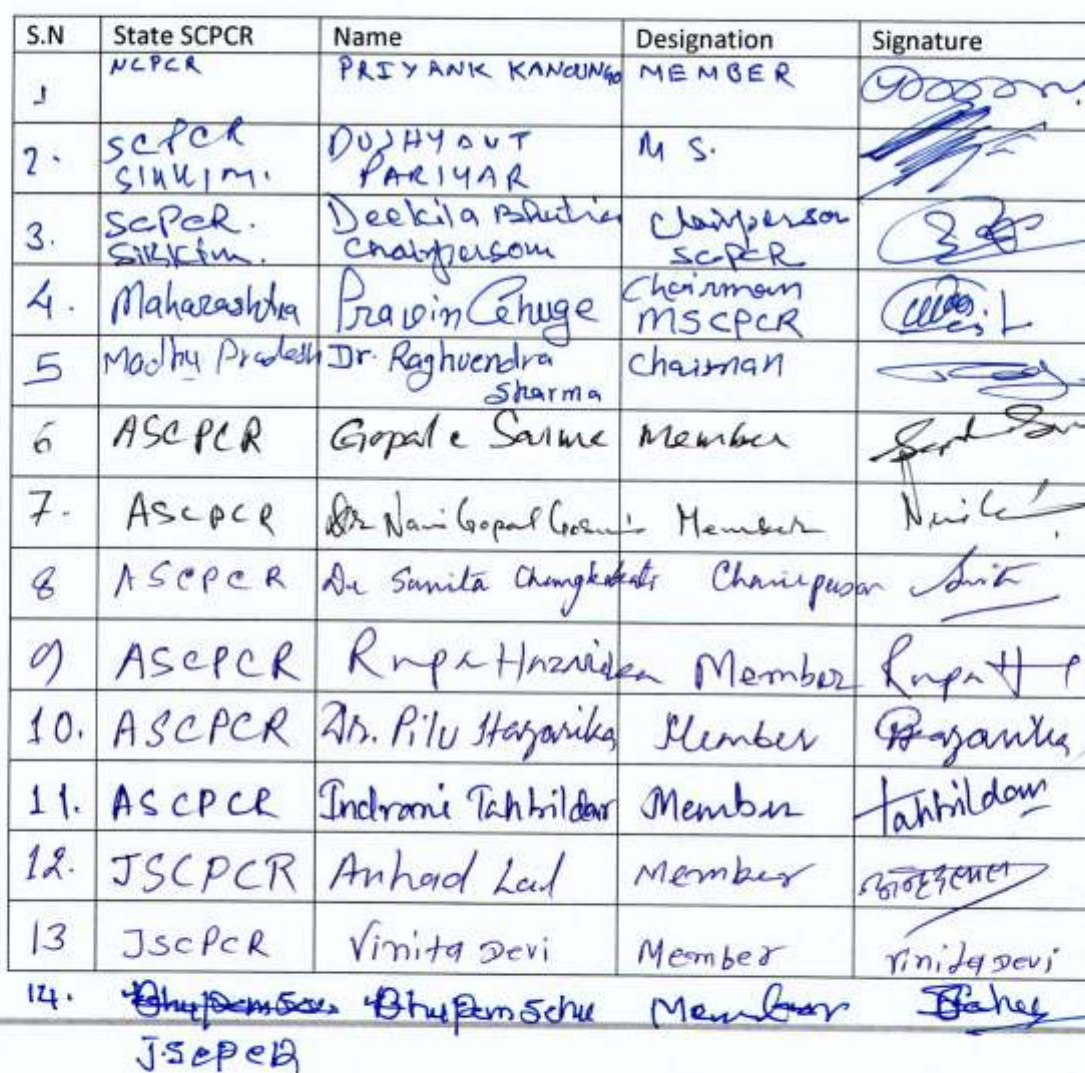 S.N State SCPCR Name Designation Signature
1 NCPCR PRIYANK KANOUNGO MEMBER
2. SCPCR DUSHYANT M S.
SIKKIM. PARIYAR
3. SCPCR. Deekila Bhutia Chairperson
SIKKIM. Chairperson SCPCR
4. Maharashtra Pravin Ghuge Chairman
MSCPCR
5 Madhu Pradesh Dr. Raghvendra Chairman
Sharma
6 ASCPCR Gopal Member
7. ASCPCR Dr Nani Gopal Member
8 ASCPCR Dr Sunita Changkakati Chairperson Sunita
9 ASCPCR Rupa Hazarika Member Rupa H
10. ASCPCR Dr. Pilu Hazarika Member Hazarika
11. ASCPCR Indrani Tahbildar Member Tahbildar
12. JSCPCR Anhad Lal Member
13 JSCPCR Vinita Devi Member Vinita Devi
14. Bhupen Sahu Member Sahu
JSCPCR